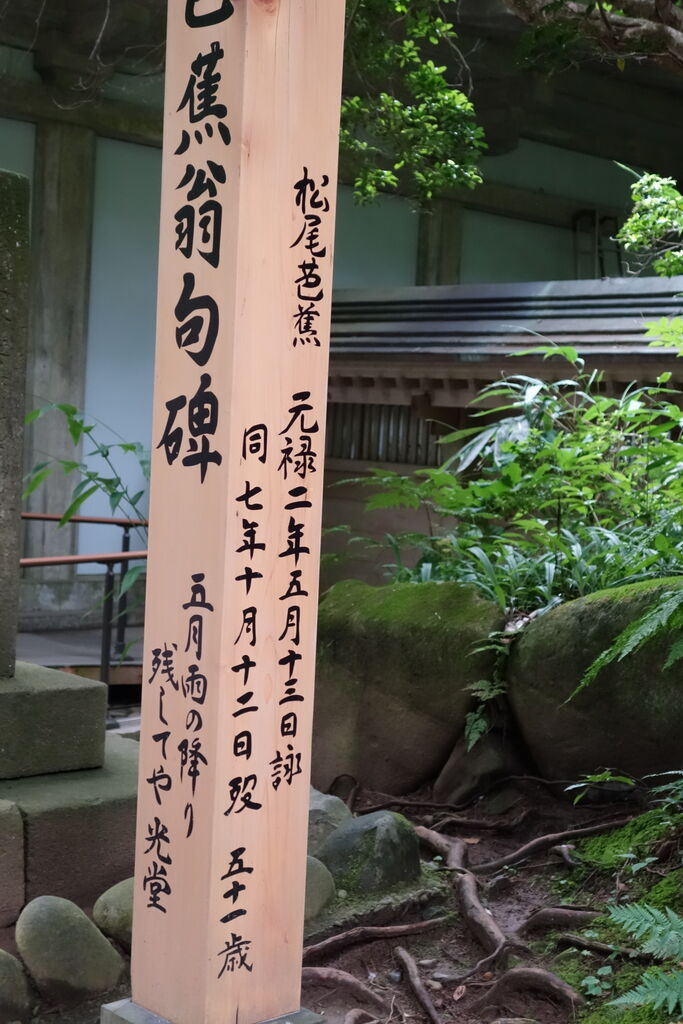 芭蕉翁句碑
五月雨の降り
残してや光堂
松尾芭蕉 元禄二年五月十三日詠
同七年十月十二日歿 五十一歳